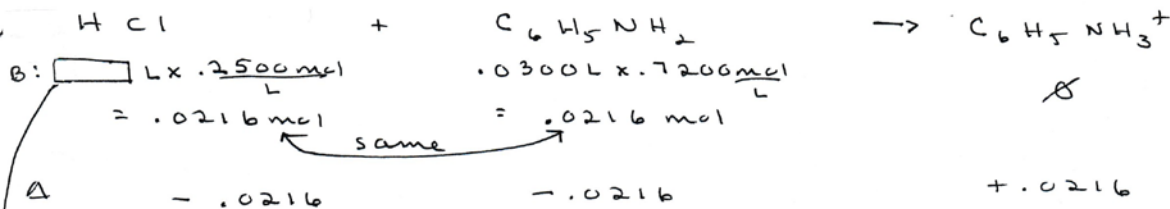 HCl + C6H5NH2 → C6H5NH3+
B: L x .2500 mol/L .0300L x .7200 mol/L ∅
= .0216 mol = .0216 mol
same
Δ - .0216 - .0216 + .0216